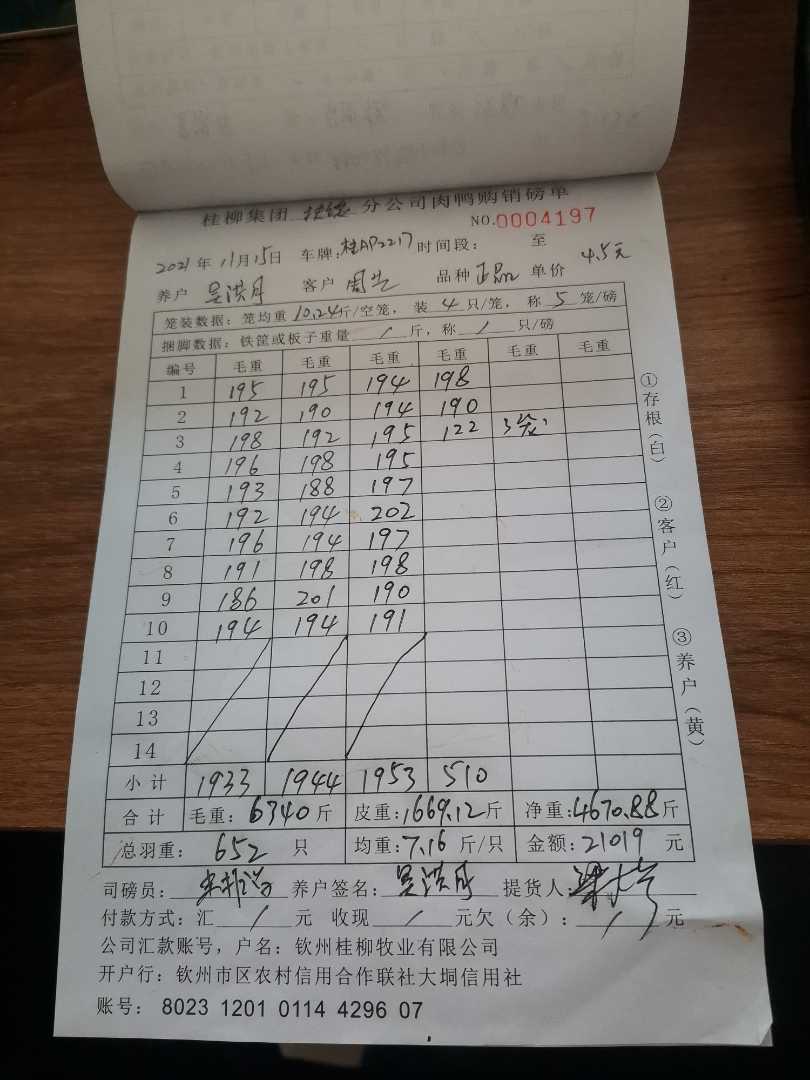 桂柳集团 分公司肉鸭购销磅单
NO.0004197
2021年11月15日 车牌:桂AP2217 时间段: 至
养户 吴洪月 客户 周兰 品种 正品 单价 4.5元
笼装数据:笼均重10.24斤/空笼,装4只/笼,称5笼/磅
捆脚数据:铁筐或板子重量/斤,称/只/磅
编号 毛重 毛重 毛重 毛重 毛重 毛重
1 195 195 194 198
2 192 190 194 190
3 198 192 195 122 3笼
4 196 198 195
5 193 188 197
6 192 194 202
7 196 194 197
8 191 198 198
9 186 201 190
10 194 194 191
11
12
13
14
小计 1933 1944 1953 510
合计 毛重:6340斤 皮重:1669.12斤 净重:4670.88斤
总羽重:652只 均重:7.16斤/只 金额:21019元
司磅员: 养户签名:吴洪月 提货人:
付款方式:汇/元 收现/元欠(余):/元
公司汇款账号,户名:钦州桂柳牧业有限公司
开户行:钦州市区农村信用合作联社大垌信用社
账号:8023 1201 0114 4296 07
①存根(白) ②客户(红) ③养户(黄)